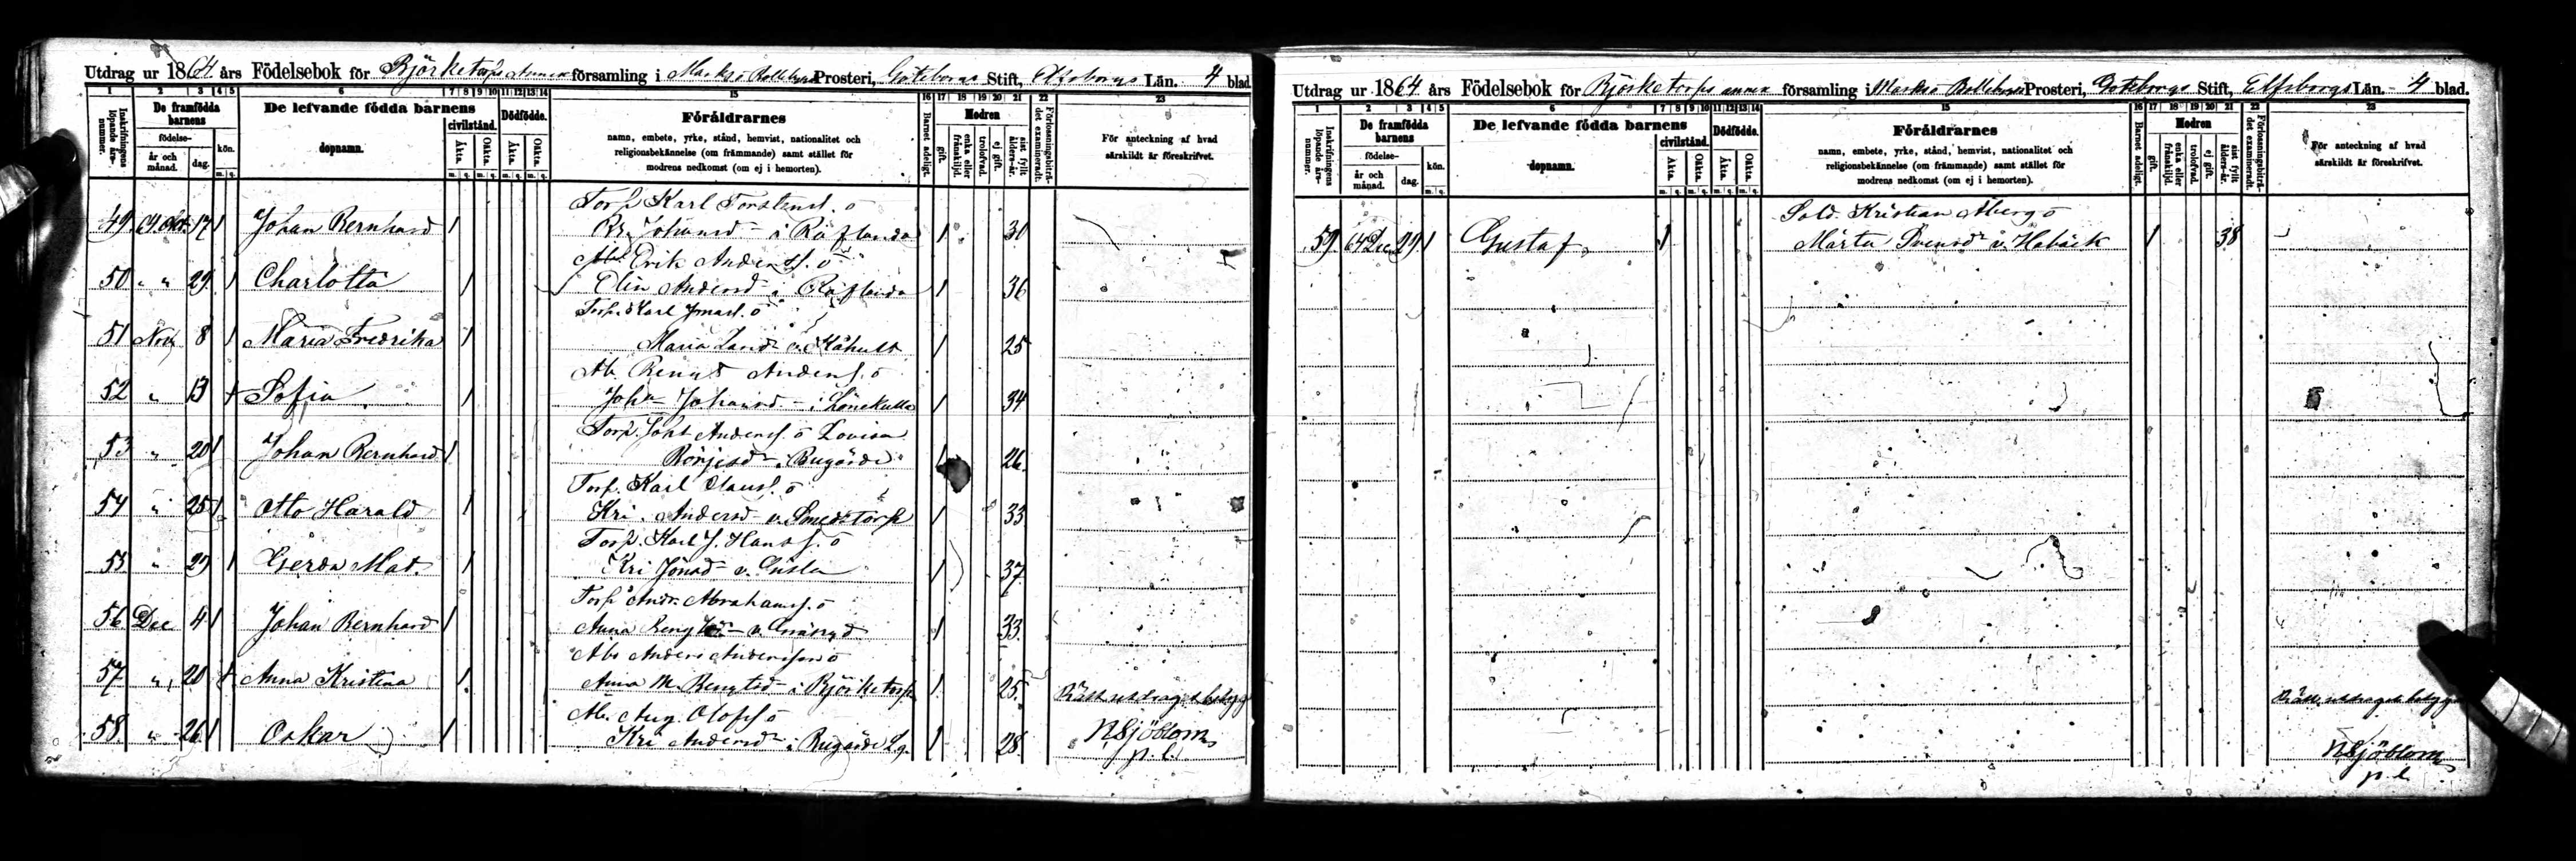 Utdrag ur 1864. års Födelsebok för Björketorps Annex församling i Marks o Bollebygds Prosteri, Göteborgs Stift, Elfsborgs Län. 4 blad
1 2 3 4 5 6 7 8 9 10 11 12 13 14 15 16 17 18 19 20 21 22 23
Inskrifningens löpande årsnummer.
De framfödda barnens
födelse-
år och månad.
dag.
kön.
m. q.
De lefvande födda barnens
dopnamn.
civilstånd.
Äkta.
Oäkta.
Dödfödde.
Äkta.
Oäkta.
m. q. m. q. m. q. m. q.
Föräldrarnes
namn, embete, yrke, stånd, hemvist, nationalitet och
religionsbekännelse (om främmande) samt stället för
modrens nedkomst (om ej i hemorten).
Barnet adeligt.
Modren
gift.
enka eller frånskild.
trolofvad.
ej gift.
sist fylt ålders-år.
Förlossningsbiträdet examineradt.
För anteckning af hvad
särskildt är föreskrifvet.
Torp Karl Torstens. o
49 64 Okt. 17 1 Johan Bernhard 1 Br. Johansd i Räflanda 1 30
Erik Anderss. o
50 " " 29 1 Charlotta 1 Elin Andersd i Räflanda 1 36
Torp. Karl Jonass. o
51 Nov 8 1 Maria Fredrika 1 Maria Larsd u. Kåhult 1 25
Ab. Bengt Anderss. o
52 " 13 + Sofia 1 Joha Johansd i Lönekulla 1 34
Torp. Joh Anderss. o Lovisa
53 " 20 1 Johan Bernhard 1 Börjesd i Bugärde 1 26
Torp. Karl Clauss. o
54 " 25 1 Otto Harald 1 Kri. Andersd u. Smedstorp 1 33
Torp. Karl J. Hanss. o
55 " 29 1 Gerda Mat. 1 Kri Jonsd u. 1 37
Torp Andr. Abrahams. o
56 Dec 4 1 Johan Bernhard 1 Anna u. 1 33
Abo Anders Andersson o
57 " 20 + Anna Kristina 1 Anna M. Bengtsd i Björketorp 1 25
Ab. Aug. Olofss o
58 " 26 1 Oskar 1 Kri Andersd i Bugärde Lg. 1 28
Rätt utdraget betygar
N Sjöblom
p. l.
Utdrag ur 1864. års Födelsebok för Björketorps annex församling i Marks o Bollebygds Prosteri, Göteborgs Stift, Elfsborgs Län. 4 blad.
1 2 3 4 5 6 7 8 9 10 11 12 13 14 15 16 17 18 19 20 21 22 23
Inskrifningens löpande årsnummer.
De framfödda barnens
födelse-
år och månad.
dag.
kön.
m. q.
De lefvande födda barnens
dopnamn.
civilstånd.
Äkta.
Oäkta.
Dödfödde.
Äkta.
Oäkta.
m. q. m. q. m. q. m. q.
Föräldrarnes
namn, embete, yrke, stånd, hemvist, nationalitet och
religionsbekännelse (om främmande) samt stället för
modrens nedkomst (om ej i hemorten).
Barnet adeligt.
Modren
gift.
enka eller frånskild.
trolofvad.
ej gift.
sist fylt ålders-år.
Förlossningsbiträdet examineradt.
För anteckning af hvad
särskildt är föreskrifvet.
Sold. Kristian Åberg o
59 64 Dec 29 1 Gustaf 1 Märta Svensd u. Habäck 1 38
Rätt utdraget betygar
N Sjöblom
p. l.